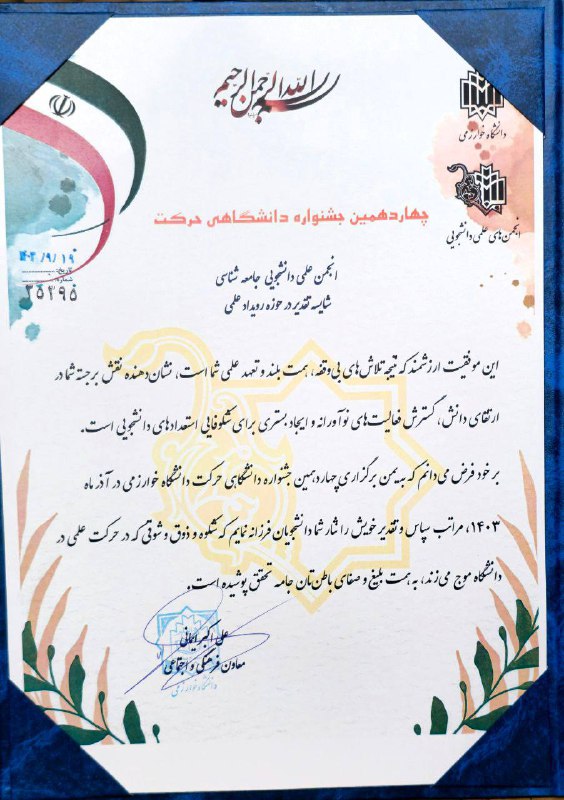 بسم الله الرحمن الرحیم
دانشگاه خوارزمی
انجمن‌های علمی دانشجویی
چهاردهمین جشنواره دانشگاهی حرکت
تاریخ: ۱۴۰۳/۹/۱۹
شماره: ۳۵۲۹۵
انجمن علمی دانشجویی جامعه شناسی
شایسته تقدیر در حوزه رویداد علمی
این موفقیت ارزشمند که نتیجه تلاش‌های بی‌وقفه، همت بلند و تعهد علمی شما است، نشان‌دهنده نقش برجسته شما در
ارتقای دانش، گسترش فعالیت‌های نوآورانه و ایجاد بستری برای شکوفایی استعدادهای دانشجویی است.
بر خود فرض می‌دانم که به یمن برگزاری چهاردهمین جشنواره دانشگاهی حرکت دانشگاه خوارزمی در آذر ماه
۱۴۰۳، مراتب سپاس و تقدیر خویش را نثار شما دانشجویان فرزانه نمایم که شکوه و ذوق و شوقی که در حرکت علمی در
دانشگاه موج می‌زند، به همت بلیغ و صفای باطن‌تان جامه تحقق پوشیده است.
علی اکبر ایمانی
معاون فرهنگی و اجتماعی
دانشگاه خوارزمی